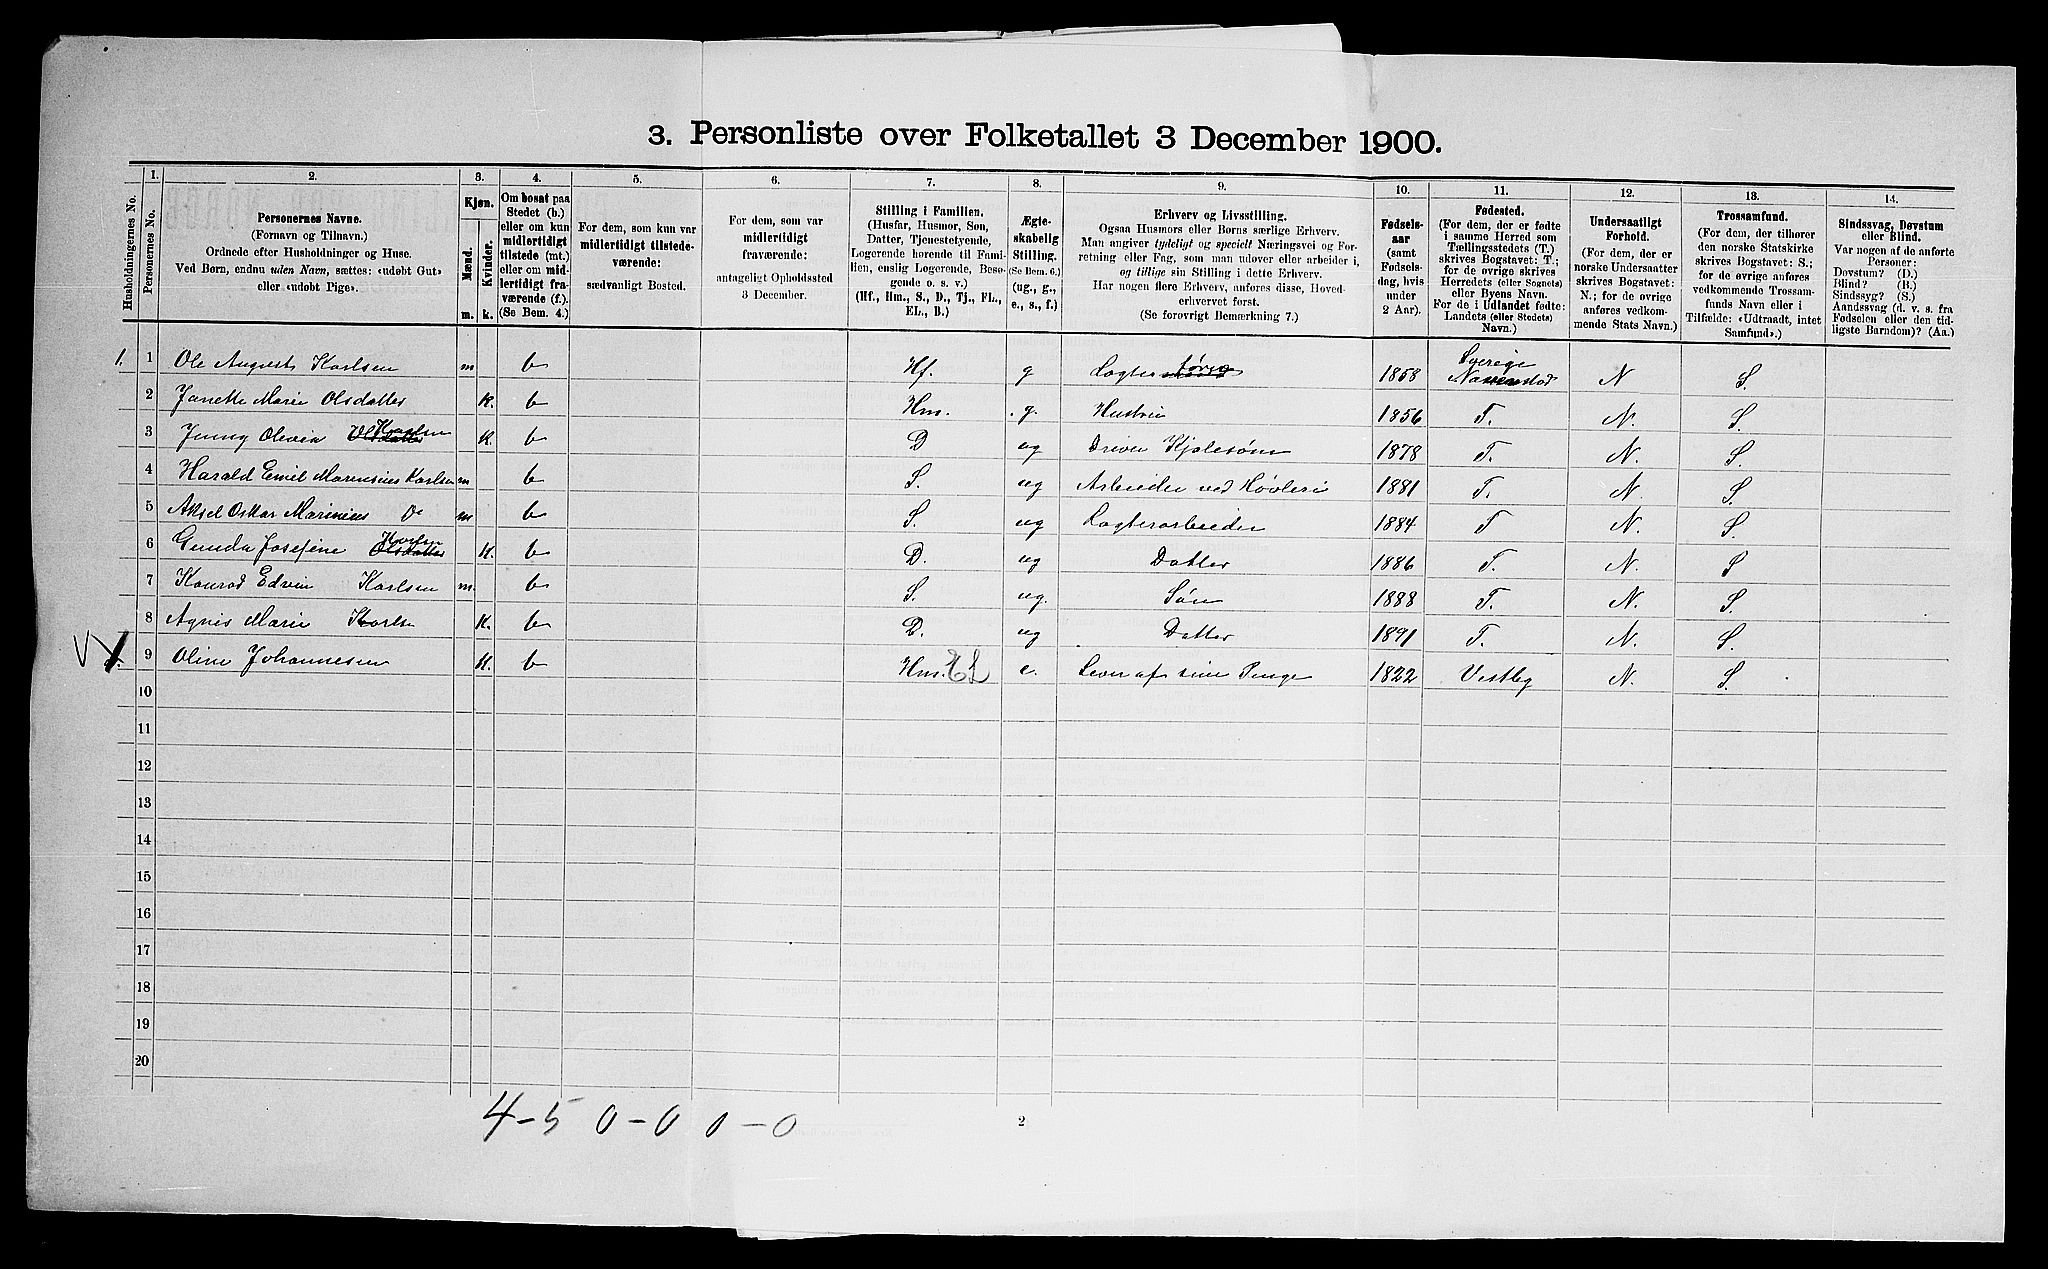 3. Personliste over Folketallet 3 December 1900.
Husholdningernes No.
1.
Personernes No.
2.
Personernes Navne.
(Fornavn og Tilnavn.)
Ordnede efter Husholdninger og Huse.
Ved Børn, endnu uden Navn, sættes: «udøbt Gut»
eller «udøbt Pige».
3.
Kjøn.
Mænd.
Kvinder.
m.
k.
4.
Om bosat paa
Stedet (b.)
eller om kun
midlertidigt
tilstede (mt.)
eller om mid-
lertidigt fra-
værende (f.).
(Se Bem. 4.)
5.
For dem, som kun var
midlertidigt tilstede-
værende:
sædvanligt Bosted.
6.
For dem, som var
midlertidigt
fraværende:
antageligt Opholdssted
3 December.
7.
Stilling i Familien.
(Husfar, Husmor, Søn,
Datter, Tjenestetyende,
Logerende hørende til Fami-
lien, enslig Logerende, Besø-
gende o. s. v.)
(Hf., Hm., S., D., Tj., FL.,
EL., B.)
8.
Ægte-
skabelig
Stilling.
(Se Bem. 6.)
(ug., g.,
e., s., f.)
9.
Erhverv og Livsstilling.
Ogsaa Husmors eller Børns særlige Erhverv.
Man angiver tydeligt og specielt Næringsvei og For-
retning eller Fag, som man udøver eller arbeider i,
og tillige sin Stilling i dette Erhverv.
Har nogen flere Erhverv, anføres disse, Hoved-
erhvervet først.
(Se forøvrigt Bemærkning 7.)
10.
Fødsels-
aar
(samt
Fødsels-
dag, hvis
under
2 Aar).
11.
Fødested.
(For dem, der er fødte
i samme Herred som
Tællingsstedets (T.)
skrives Bogstavet: T.;
for de øvrige skrives
Herredets (eller Sognets)
eller Byens Navn.
For de i Udlandet fødte:
Landets (eller Stedets)
Navn.)
12.
Undersaatligt
Forhold.
(For dem, der er
norske Undersaatter
skrives Bogstavet:
N.; for de øvrige
anføres vedkom-
mende Stats Navn.)
13.
Trossamfund.
(For dem, der tilhører
den norske Statskirke
skrives Bogstavet: S.;
for de øvrige anføres
vedkommende Trossam-
funds Navn eller i
Tilfælde: «Udtraadt, intet
Samfund».)
14.
Sindssvag, Døvstum
eller Blind.
Var nogen af de anførte
Personer:
Døvstum? (D.)
Blind? (B.)
Sindssyg? (S.)
Aandssvag (d. v. s. fra
Fødselen eller den tid-
ligste Barndom)? (Aa.)
1. 1 Ole August Karlsen m b Hf. g Lagter 1858 Sverige N S.
2 Janette Marie Olsdatter k. b Hm. g. Hustru 1856 T. N. S.
3 Jenny Olevia Olsdatter Karlsen k. b D ug Driver Kjolesøm 1878 T. N. S.
4 Harald Emil Marensius Karlsen m b S. ug Arbeider ved Høvleri 1881 T. N. S.
5 Aksel Oskar Marinius Do m b S. ug Lagterarbeider 1884 T N. S.
6 Gunda Josefine Olsdatter Karlsen k. b D. ug Datter 1886 T. N. S
7 Konrad Edvin Karlsen m. b S. ug. Søn 1888 T. N. S.
8 Agnes Marie Karlsen k. b D. ug Datter 1891 T. N. S.
9 Oline Johannesen k. b Hm. EL e. Lever af sine Penge 1822 Vestby N. S.
10
11
12
13
14
15
16
17
18
19
20
4-5 0-0 0-0
2